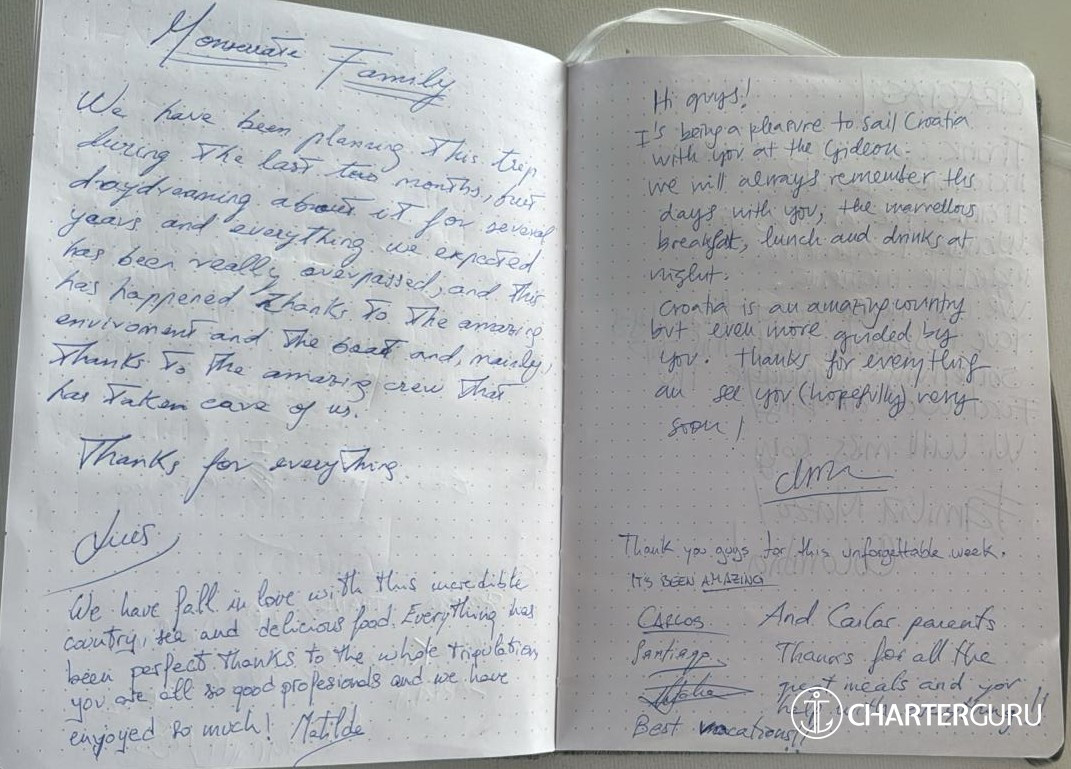 Monserrate Family
We have been planning this trip
during the last two months, but
daydreaming about it for several
years and everything we expected
has been really overpassed, and this
has happened thanks to the amazing
enviroment and the boat and, mainly,
thanks to the amazing crew that
has taken care of us.
Thanks for everything.
Luis
We have fall in love with this incredible
country, sea and delicious food. Everything has
been perfect thanks to the whole tripulation,
you are all so good profesionals and we have
enjoyed so much! Matilde
Hi guys!
I's being a pleasure to sail Croatia
with you at the Gideon.
We will always remember this
days with you, the marvellous
breakfat, lunch and drinks at
night.
Croatia is an amazing country
but even more guided by
you. thanks for everything
an see you (hopefully) very
soon!
Thank you guys for this unforgettable week.
IT'S BEEN AMAZING
CARLOS
Santiago
And Carlos parents
Thanks for all the
great meals and your
Best vacations!!
CHARTERGURU